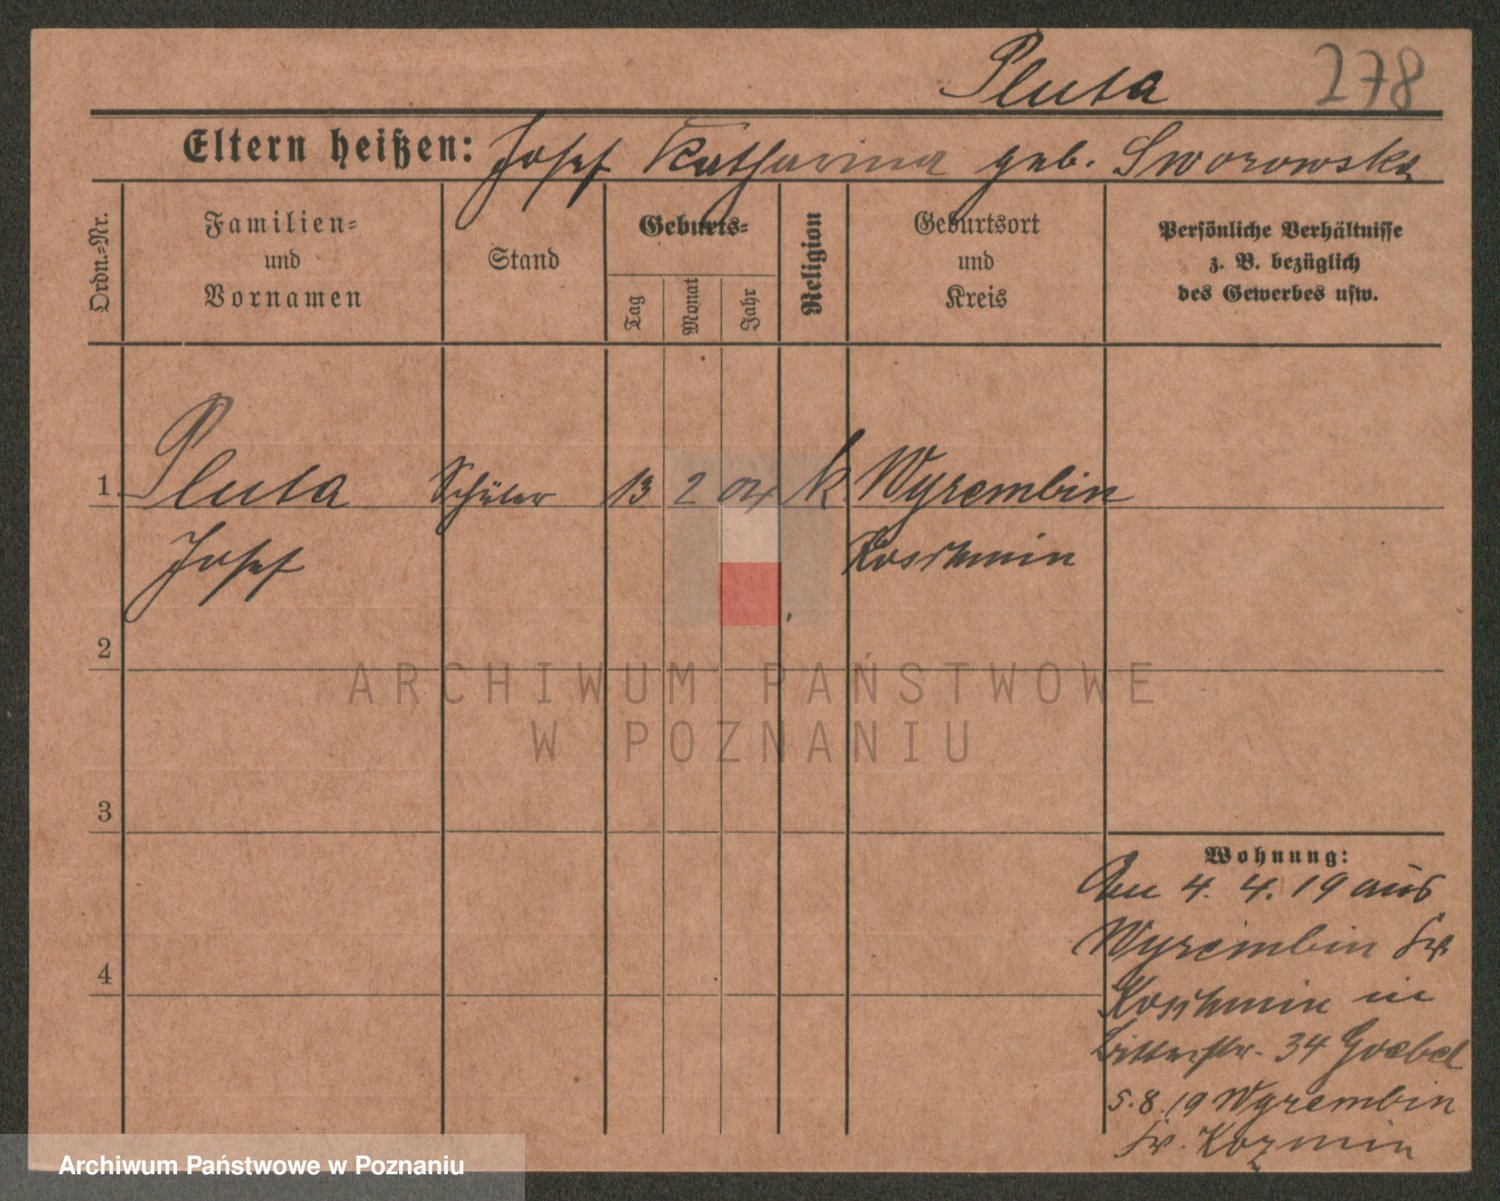 Pluta 278
Eltern heißen: Josef Katharina geb. Sworowska
Ordn.-Nr.
Familien-
und
Vornamen
Stand
Geburts-
Tag
Monat
Jahr
Religion
Geburtsort
und
Kreis
Persönliche Verhältnisse
z. B. bezüglich
des Gewerbes usw.
1 Pluta Schüler 13 2 04 k Wyrembin
Josef Koschmin
2
3
4
Wohnung:
4. 4. 19 aus
Wyrembin Kr.
Koschmin in
34 Goebel
5. 8. 19 Wyrembin
Kr. Kozmin
ARCHIWUM PAŃSTWOWE
W POZNANIU
Archiwum Państwowe w Poznaniu